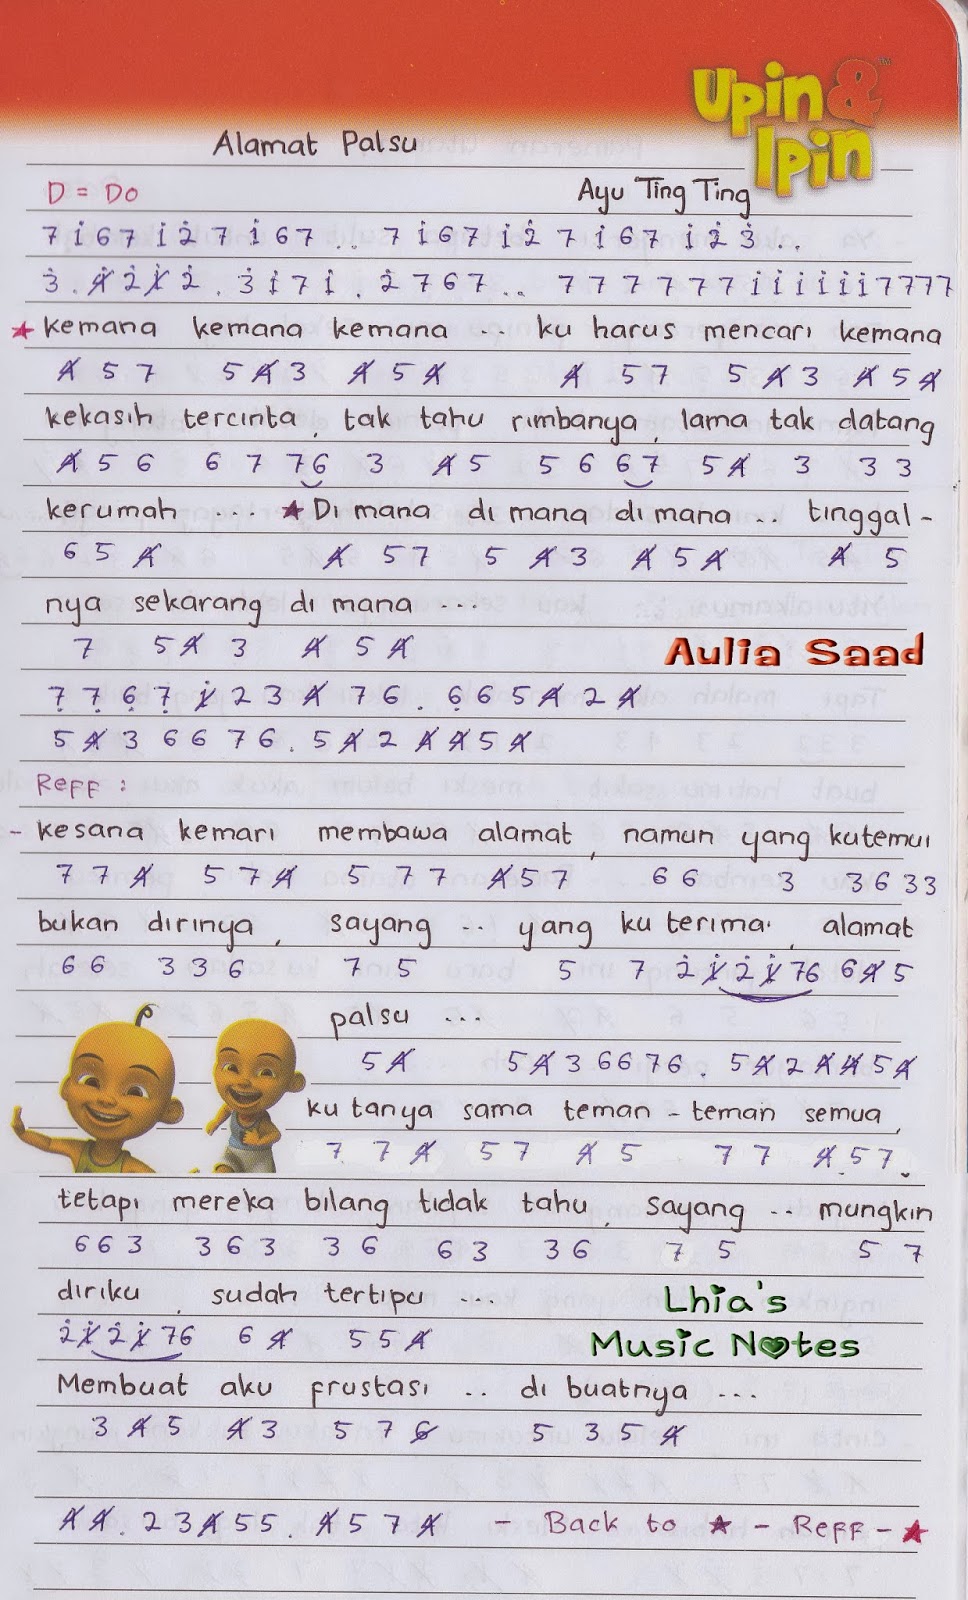 Upin & Ipin™
Alamat Palsu
D = Do Ayu Ting Ting
7 1̇ 6 7 1̇ 2̇ 7 1̇ 6 7 .. 7 1̇ 6 7 1̇ 2̇ 7 1̇ 6 7 1̇ 2̇ 3̇ ...
3̇ . 4̸̇ 2̇ 1̸̇ 2̇ . 3̇ 1̇ 7 1̇ . 2̇ 7 6 7 .. 7 7 7 7 7 7 1̇ 1̇ 1̇ 1̇ 1̇ 1̇ 7 7 7 7
★ kemana kemana kemana ... ku harus mencari kemana
4̸ 5 7 5 4̸ 3 4̸ 5 4̸ 4̸ 5 7 5 4̸ 3 4̸ 5 4̸
kekasih tercinta, tak tahu rimbanya, lama tak datang
4̸ 5 6 6 7 7 6 3 4̸ 5 5 6 6 7 5 4̸ 3 3 3
kerumah .... ★ Di mana di mana di mana .. tinggal -
6 5 4̸ 4̸ 5 7 5 4̸ 3 4̸ 5 4̸ 4̸ 5
nya sekarang di mana ...
7 5 4̸ 3 4̸ 5 4̸
Aulia Saad
7̣ 7̣ 6̣ 7̣ 1̸ 2 3 4̸ 7 6 . 6̣ 6 5 4̸ 2 4̸
5 4̸ 3 6 6 7 6 . 5 4̸ 2 4̸ 4̸ 5 4̸
Reff :
- kesana kemari membawa alamat, namun yang kutemui
7 7 4̸ 5 7 4̸ 5 7 7 4̸ 5 7 6 6 3 3 6 3 3
bukan dirinya, sayang .. yang ku terima, alamat
6 6 3 3 6 7 5 5 7 2̇ 1̸̇ 2̇ 1̸̇ 7 6 6 4̸ 5
palsu ...
5 4̸ 5 4̸ 3 6 6 7 6 . 5 4̸ 2 4̸ 4̸ 5 4̸
ku tanya sama teman - teman semua,
7 7 4̸ 5 7 4̸ 5 7 7 4̸ 5 7
tetapi mereka bilang tidak tahu, sayang .. mungkin
6 6 3 3 6 3 3 6 6 3 3 6 7 5 5 7
diriku, sudah tertipu ...
2̇ 1̸̇ 2̇ 1̸̇ 7 6 6 4̸ 5 5 4̸
Lhia's
Music Notes
Membuat aku frustasi .. di buatnya ...
3 4̸ 5 4̸ 3 5 7 6̸ 5 3 5 4̸
4̸ 4̸ . 2 3 4̸ 5 5 . 4̸ 5 7 4̸ - Back to ★ - Reff - ★